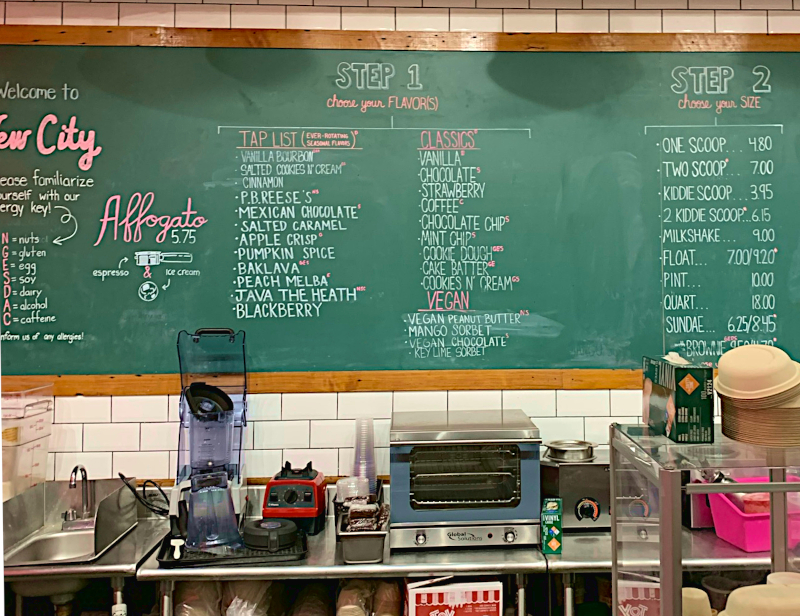 Welcome to
ew City
ease familiarize
urself with our
ergy key!
N = nuts
G = gluten
E = egg
S = soy
D = dairy
A = alcohol
C = caffeine
nform us of any allergies!
Affogato
5.75
espresso & ice cream
STEP 1
choose your FLAVOR(S)
TAP LIST (EVER-ROTATING SEASONAL FLAVORS)
· VANILLA BOURBON
· SALTED COOKIES N CREAM
· CINNAMON
· P.B. REESE'S
· MEXICAN CHOCOLATE
· SALTED CARAMEL
· APPLE CRISP
· PUMPKIN SPICE
· BAKLAVA
· PEACH MELBA
· JAVA THE HEATH
· BLACKBERRY
CLASSICS
· VANILLA
· CHOCOLATE
· STRAWBERRY
· COFFEE
· CHOCOLATE CHIP
· MINT CHIP
· COOKIE DOUGH
· CAKE BATTER
· COOKIES N' CREAM
VEGAN
· VEGAN PEANUT BUTTER
· MANGO SORBET
· VEGAN CHOCOLATE
· KEY LIME SORBET
STEP 2
choose your SIZE
· ONE SCOOP... 4.80
· TWO SCOOP 7.00
· KIDDIE SCOOP... 3.95
· 2 KIDDIE SCOOP.. 6.15
· MILKSHAKE... 9.00
· FLOAT... 7.00/9.20
· PINT... 10.00
· QUART... 18.00
· SUNDAE... 6.25/8.45
BROWNIE
Global
Solutions
VINYL